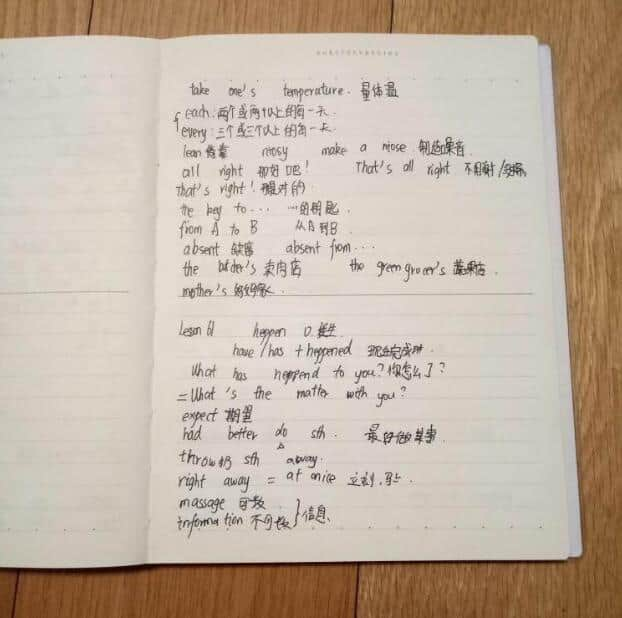 take one's temperature. 量体温
each: 两个或两个以上的每一天.
every: 三个或三个以上的每一天.
lean 倚靠 nosy make a niose 制造噪音
all right 那好吧! That's all right 不用谢/
That's right! 很对的
the key to... ...的钥匙.
from A to B 从A到B
absent 缺席 absent from...
the buther's 卖肉店 the green grocer's 蔬果店
mother's
Lesson 61 heppen 发生
have/has + heppened 现在完成时.
What has heppend to you? 你怎么了?
=What 's the matter with you?
expect 期望
had better do sth. 最好做某事
throw 扔 sth away.
right away = at once 立刻,马上
massage 可数
information 不可数 }信息